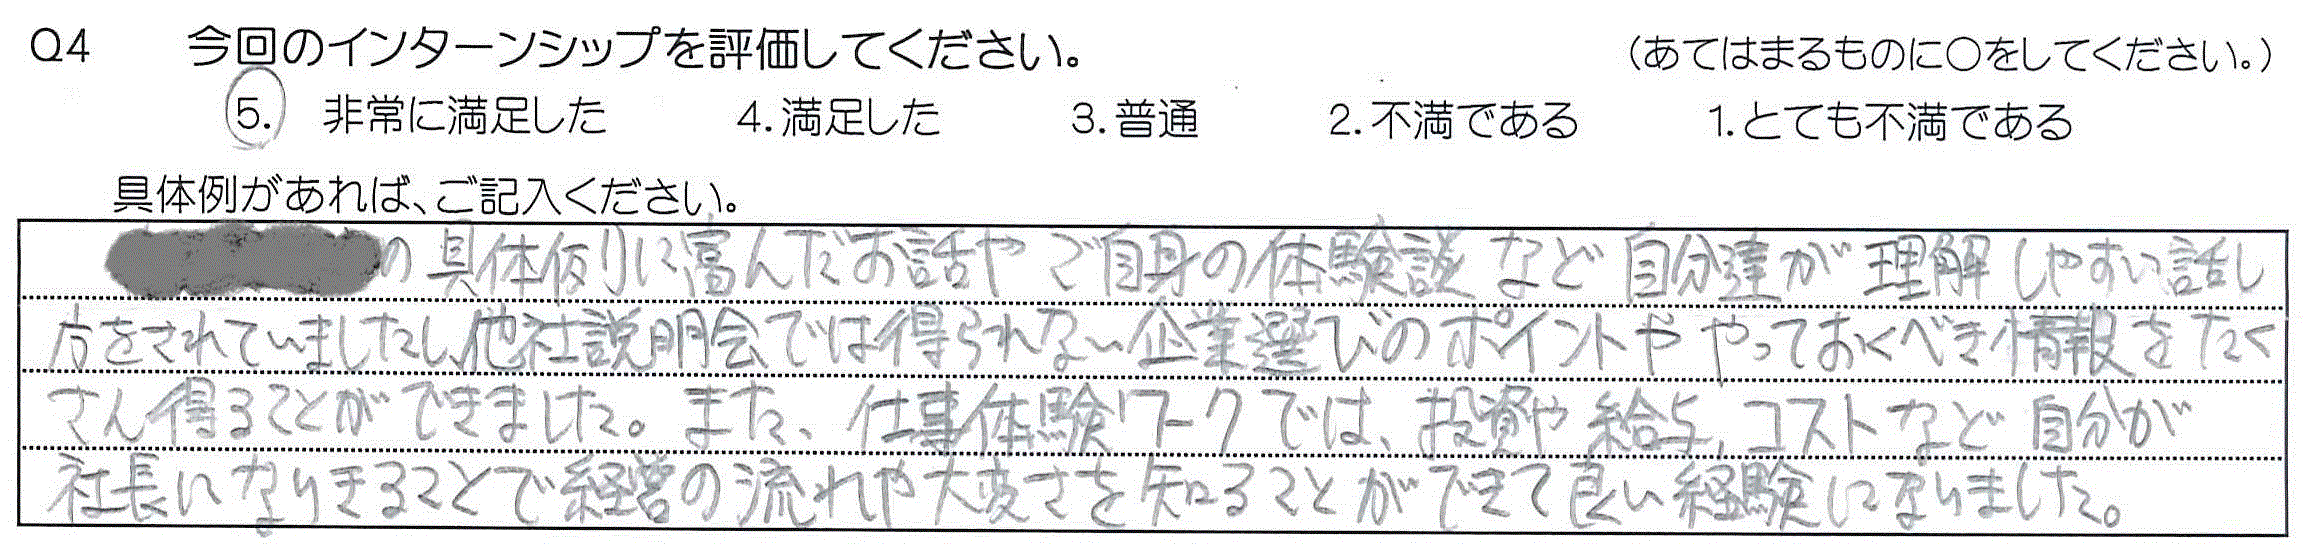 Q4 今回のインターンシップを評価してください。 (あてはまるものに○をしてください。)
5. 非常に満足した 4.満足した 3.普通 2.不満である 1.とても不満である
具体例があれば、ご記入ください。
の具体例に富んだお話やご自身の体験談など自分達が理解しやすい話し
方をされていましたし、他社説明会では得られない企業選びのポイントややっておくべき情報をたく
さん得ることができました。また、仕事体験ワークでは、投資や給与、コストなど自分が
社長になりきることで経営の流れや大変さを知ることができて良い経験になりました。